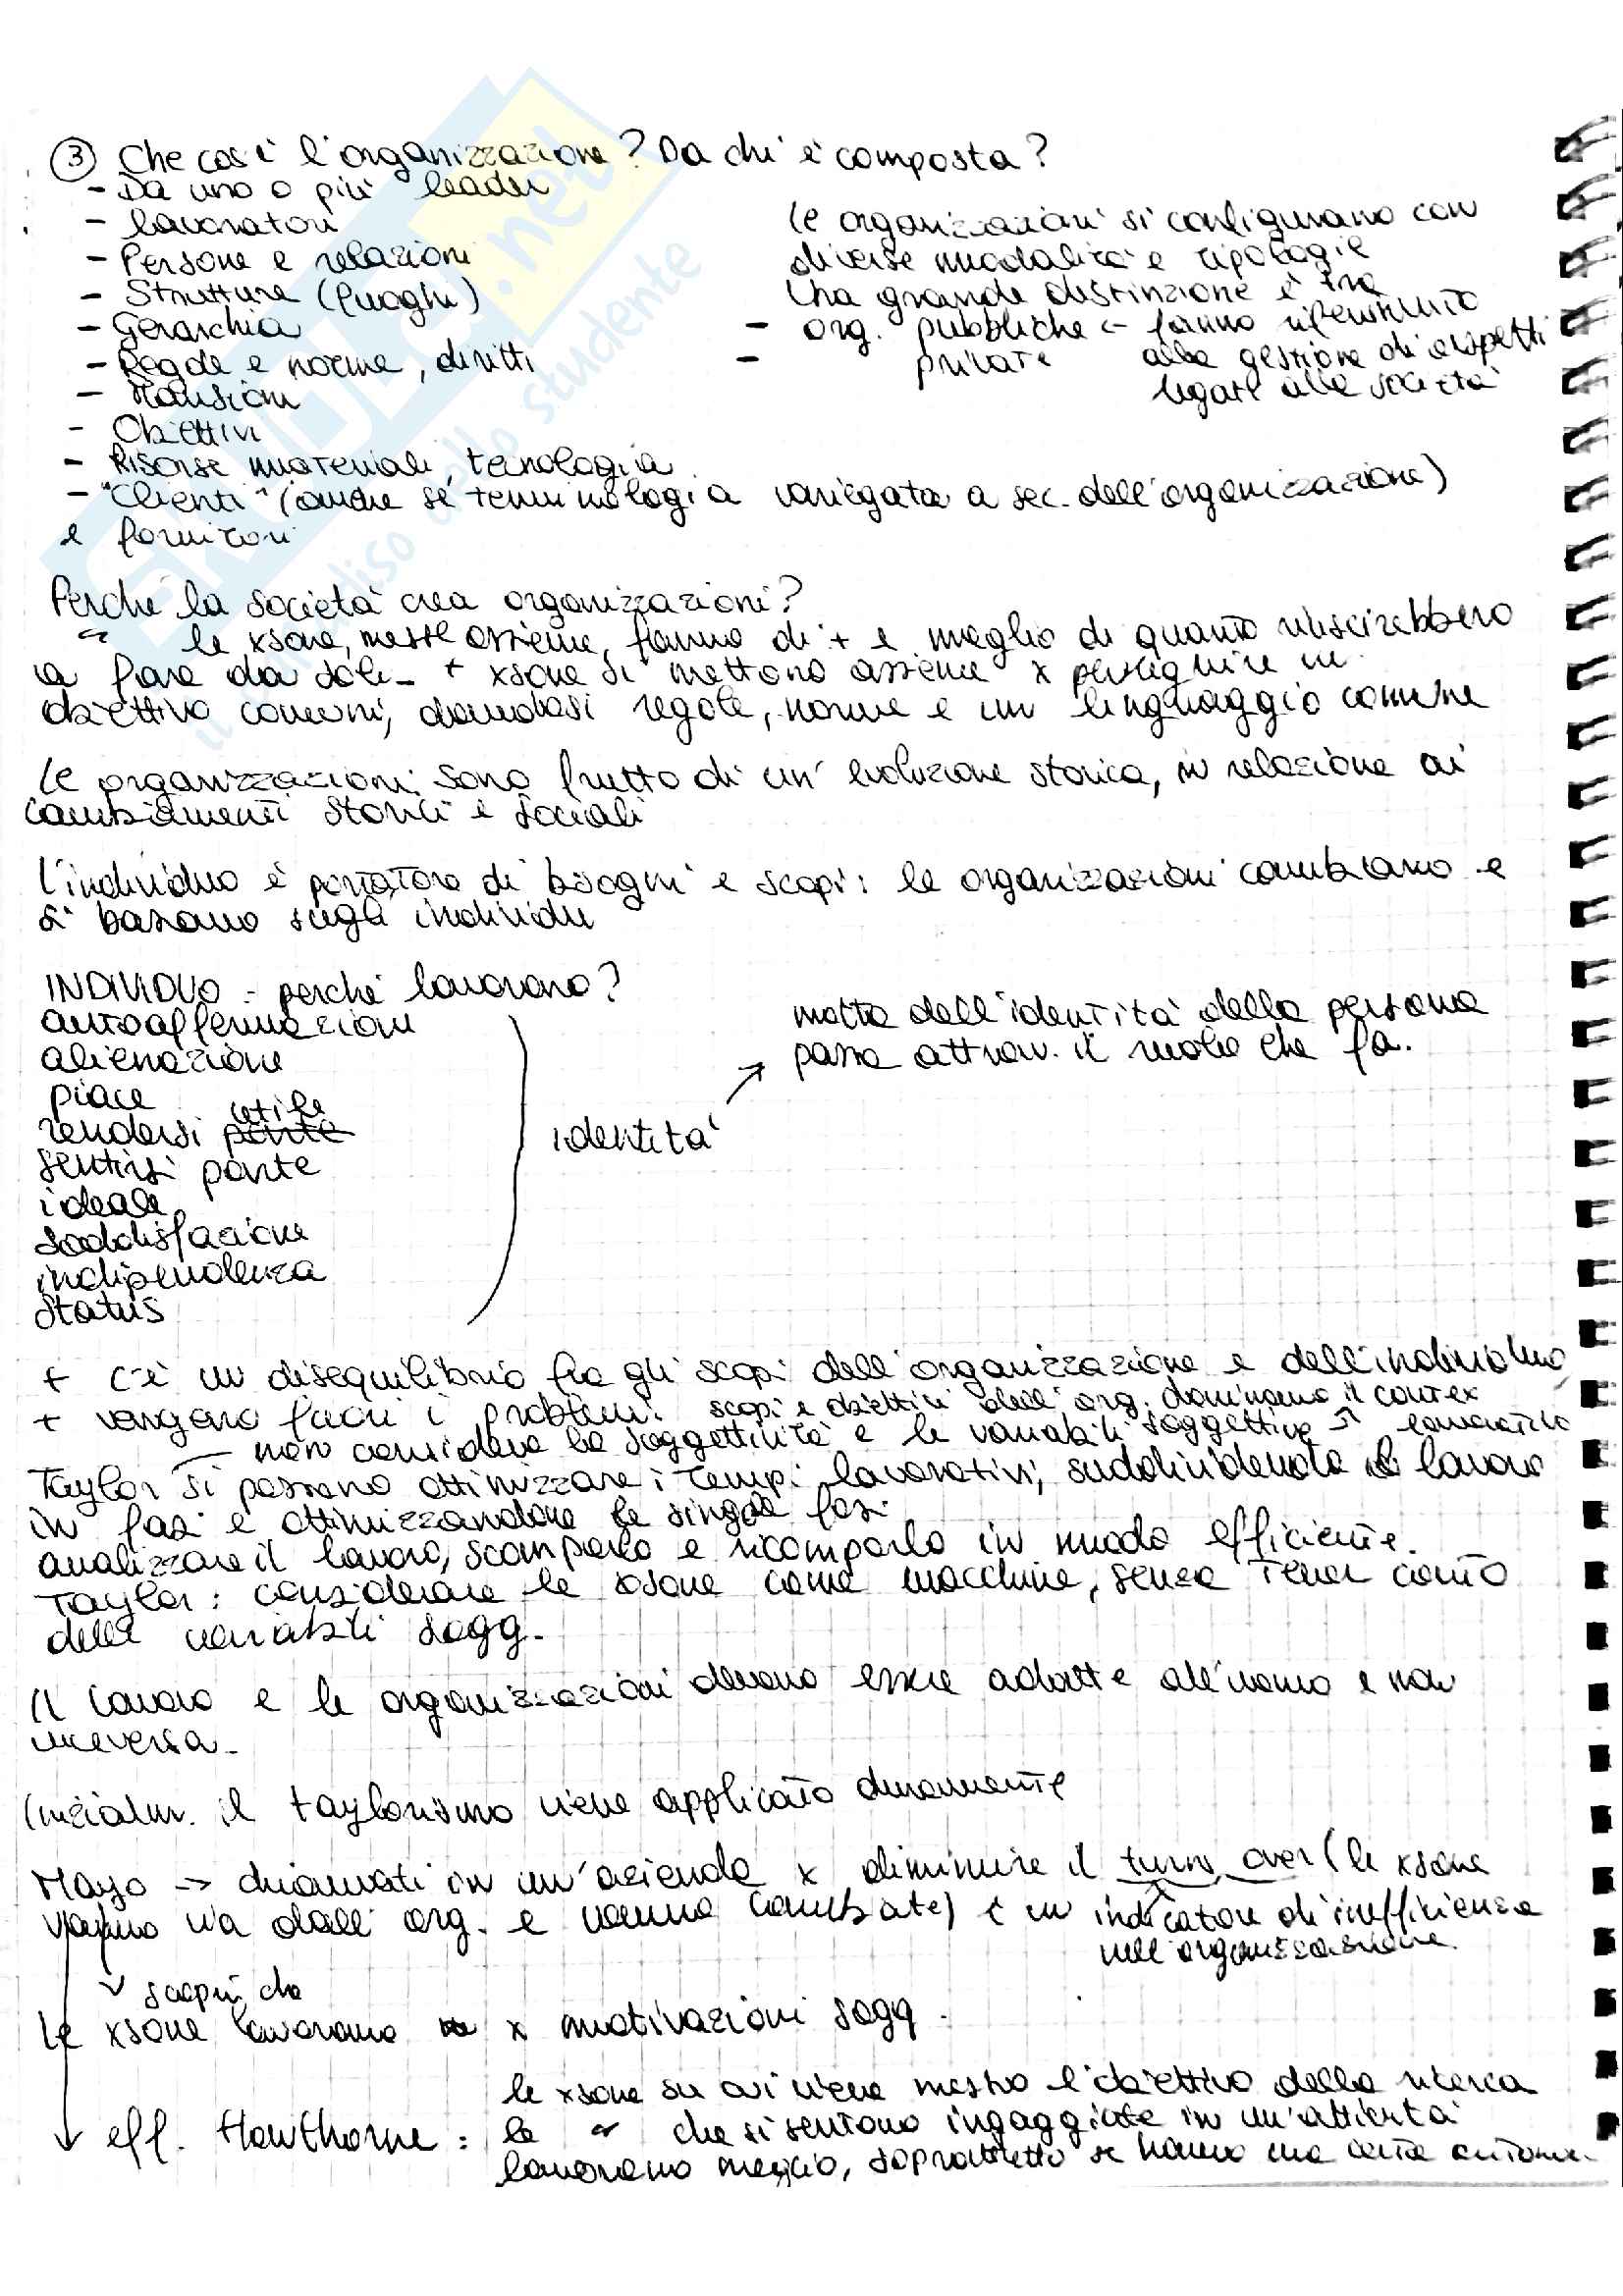 ③ Che cos'è l'organizzazione? Da chi è composta?
- Da uno o più leader
- lavoratori
- Persone e relazioni
- Strutture (luoghi)
- Gerarchia
- Regole e norme, diritti
- Mansioni
- Obiettivi
- Risorse materiali, tecnologia
- "Clienti" (anche se terminologia variegata a sec. dell'organizzazione)
e fornitori
Le organizzazioni si configurano con
diverse modalità e tipologie
Una grande distinzione è tra
- org. pubbliche ← fanno riferimento
- private alla gestione di aspetti
legati alla società
Perché la società crea organizzazioni?
" le xsone, messe assieme, fanno di + e meglio di quanto riuscirebbero
a fare da soli - + xsone si mettono assieme x perseguire un
obiettivo comuni, dandosi regole, norme e un linguaggio comune
Le organizzazioni sono frutto di un' evoluzione storica, in relazione ai
cambiamenti storici e sociali
L'individuo è portatore di bisogni e scopi: le organizzazioni cambiano e
si basano sugli individui
INDIVIDUO - perché lavorano?
autoaffermazioni
alienazione
piace
rendersi parte utile
sentirsi parte
ideale
soddisfazione
indipendenza
status
identità
molta dell'identità della persona
passa attrav. il ruolo che fa.
+ c'è un disequilibrio fra gli scopi dell'organizzazione e dell'individuo
+ vengono fuori i problemi: scopi e obiettivi dell'org. dominano il contex
lavorativo
non considera la soggettività e le variabili soggettive
Taylor si possono ottimizzare i tempi lavorativi, suddividendo il lavoro
in fasi e ottimizzandone le singole fasi
analizzare il lavoro, scomporlo e ricomporlo in modo efficiente.
Taylor: considerare le xsone come macchine, senza tener conto
delle variabili sogg.
Il lavoro e le organizzazioni devono essere adatte all'uomo e non
viceversa.
Inizialm. il taylorismo viene applicato duramente
Mayo → chiamati in un'azienda x diminuire il turn over (le xsone
vanno via dall' org. e vanno cambiate) è un indicatore di inefficienza
nell'organizzazione.
scoprì che
Le xsone lavorano x motivazioni sogg.
eff. Hawthorne: le xsone su cui viene messo l'obiettivo della ricerca
le " che si sentono ingaggiate in un'attività
lavorano meglio, soprattutto se hanno una certa autono.